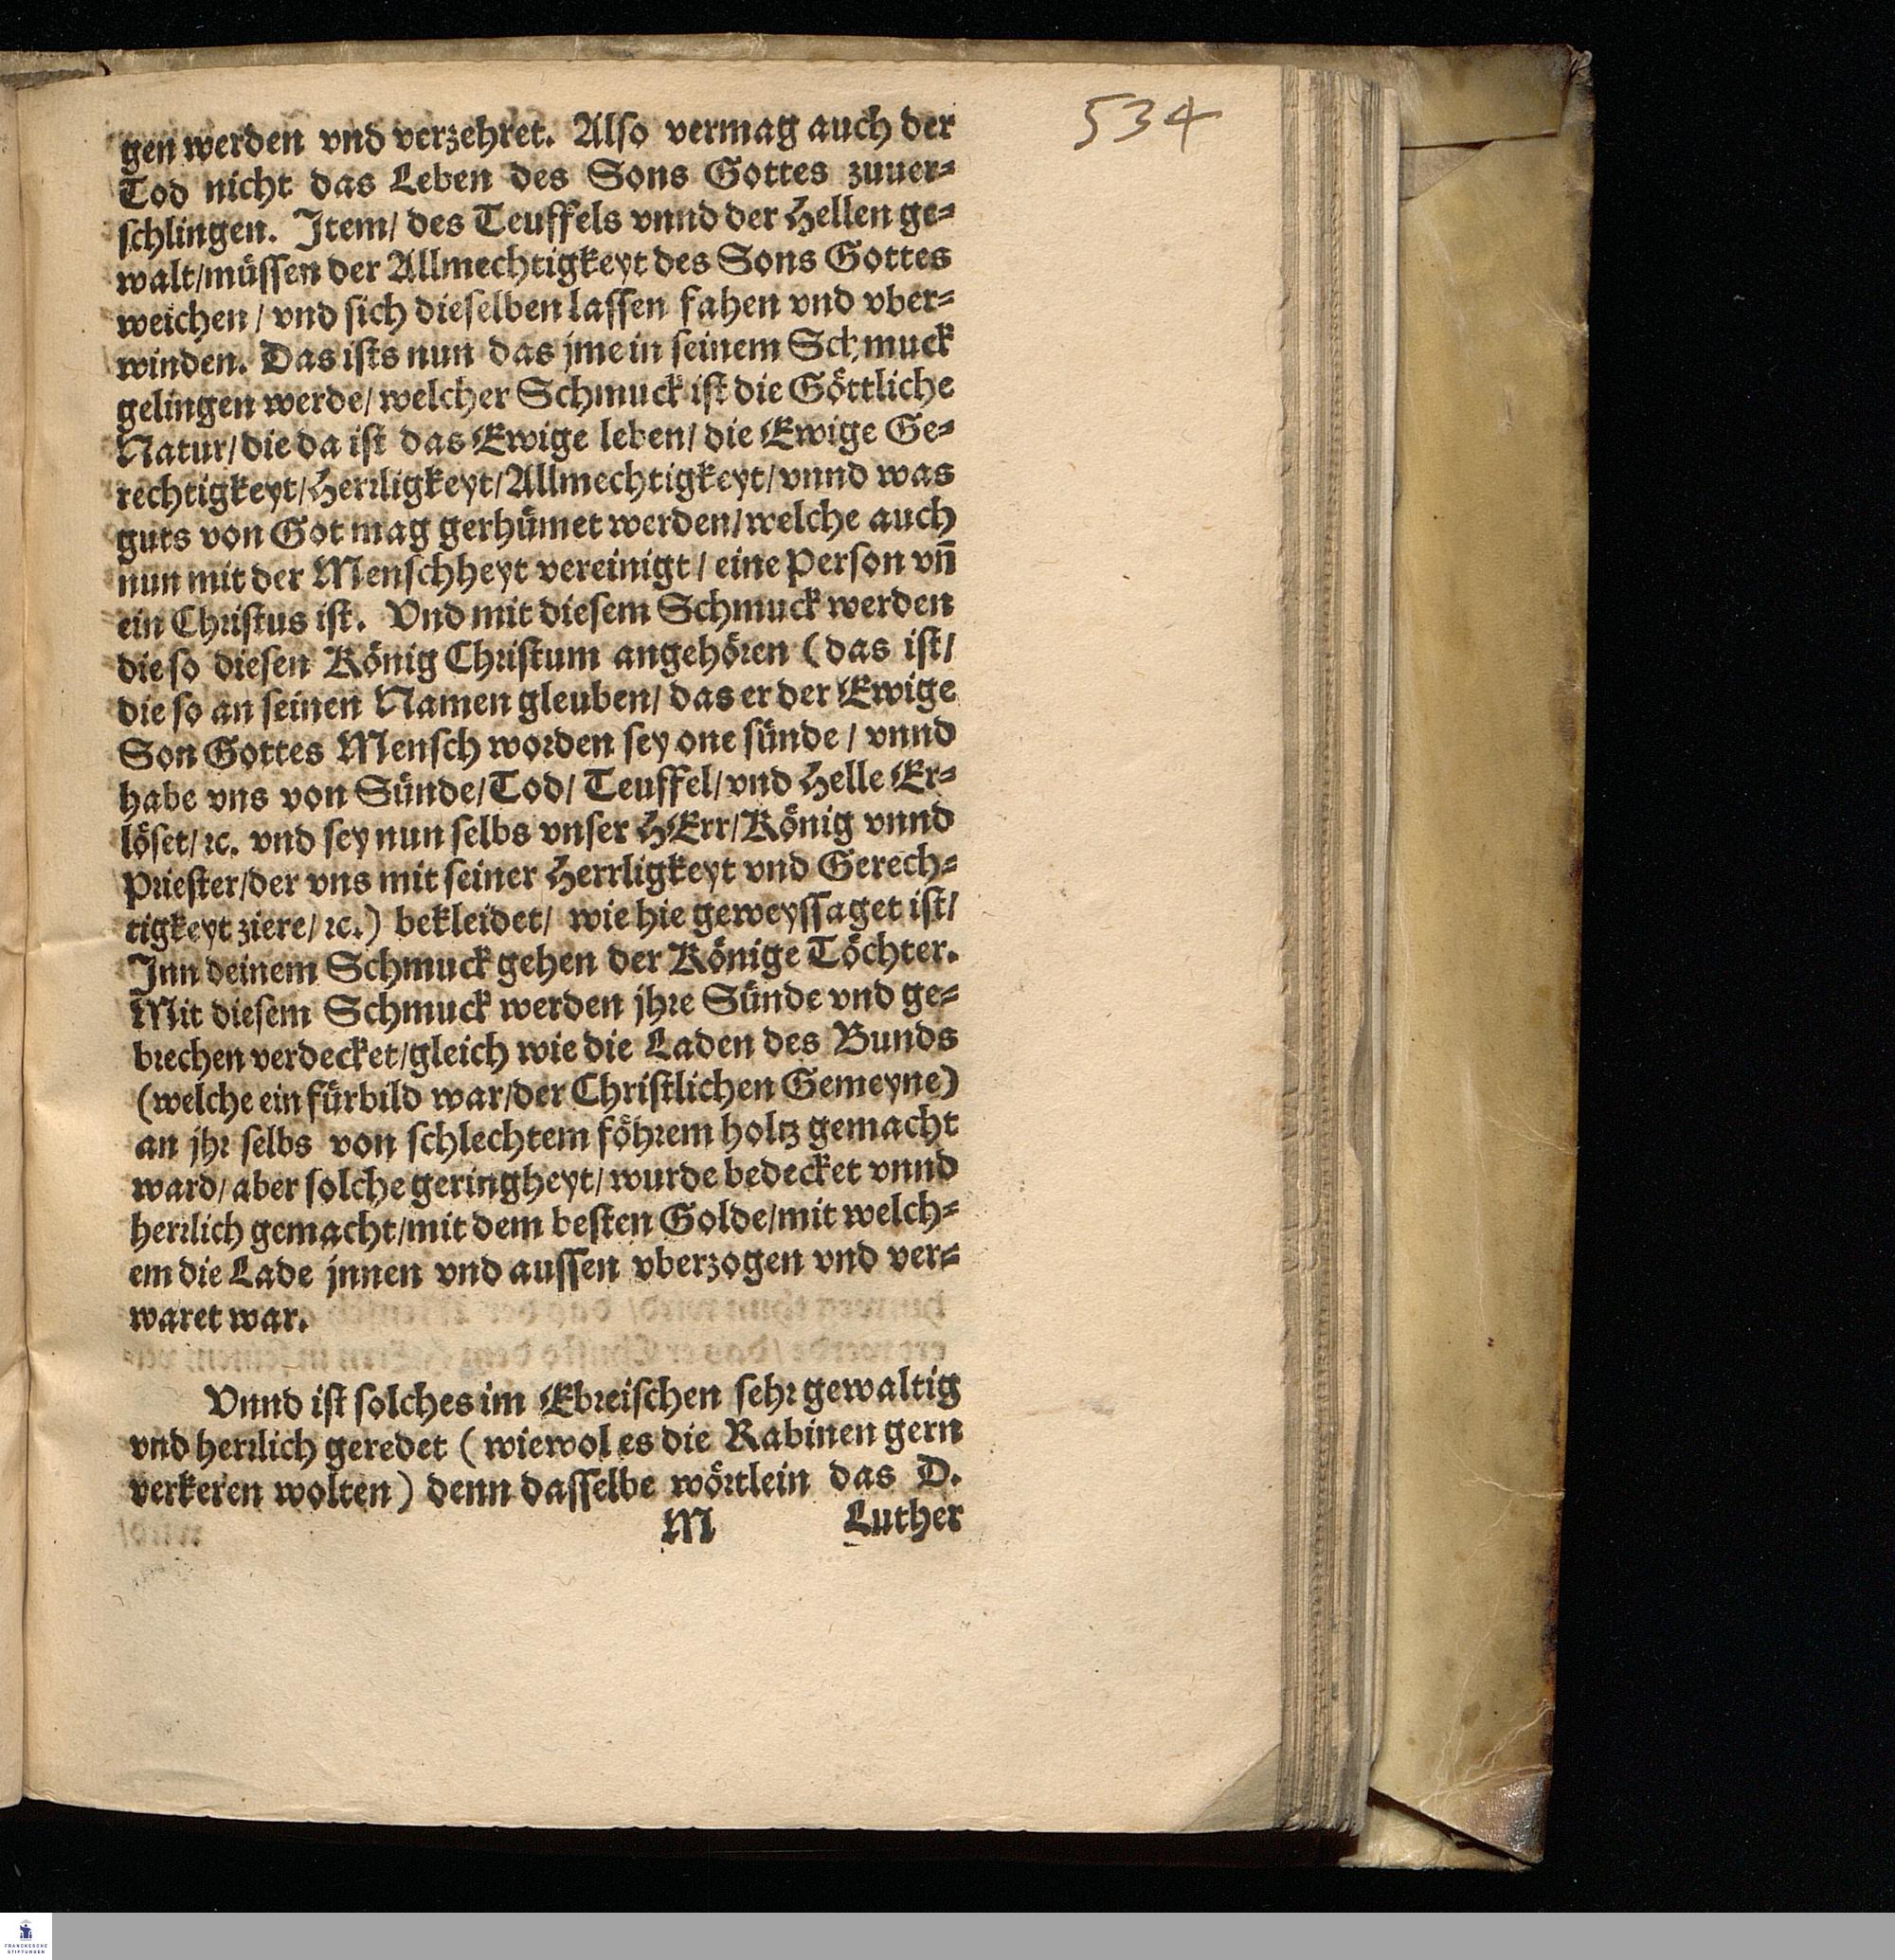 534
gen werden vnd verzehret. Also vermag auch der
Tod nicht das Leben des Sons Gottes zuuer⸗
schlingen. Item/ des Teuffels vnnd der Hellen ge⸗
walt/müssen der Allmechtigkeyt des Sons Gottes
weichen / vnd sich dieselben lassen fahen vnd vber⸗
winden. Das ists nun das jme in seinem Schmuck
gelingen werde/ welcher Schmuck ist die Göttliche
Natur/ die da ist das Ewige leben/ die Ewige Ge⸗
rechtigkeyt/Herrligkeyt/Allmechtigkeyt/ vnnd was
guts von Got mag gerhümet werden/welche auch
nun mit der Menschheyt vereinigt / eine Person vn̄
ein Christus ist. Vnd mit diesem Schmuck werden
die so diesen König Christum angehören (das ist/
die so an seinen Namen gleuben/ das er der Ewige
Son Gottes Mensch worden sey one sünde / vnnd
habe vns von Sünde/Tod/ Teuffel/ vnd Helle Er⸗
löset/ ꝛc. vnd sey nun selbs vnser HErr/König vnnd
Priester/der vns mit seiner Herrligkeyt vnd Gerech⸗
tigkeyt ziere/ ꝛc.) bekleidet/ wie hie geweyssaget ist/
Inn deinem Schmuck gehen der Könige Töchter.
Mit diesem Schmuck werden jhre Sünde vnd ge⸗
brechen verdecket/gleich wie die Laden des Bunds
(welche ein fürbild war/der Christlichen Gemeyne)
an jhr selbs von schlechtem föhrem holtz gemacht
ward/ aber solche geringheyt/ wurde bedecket vnnd
herrlich gemacht/mit dem besten Golde/mit welch⸗
em die Lade jnnen vnd aussen vberzogen vnd ver⸗
waret war.
Vnnd ist solches im Ebreischen sehr gewaltig
vnd herrlich geredet ( wiewol es die Rabinen gern
verkeren wolten) denn dasselbe wörtlein das D.
M Luther
FRANCKESCHE
STIFTUNGEN